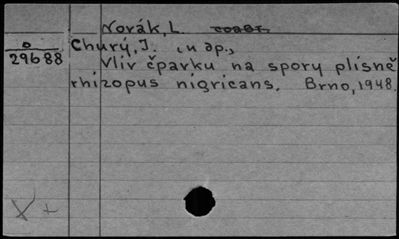 Novák, L.
o Churý, J. (u др.,
29688 Vliv čpavku na spory plísně
rhizopus nigricans. Brno, 1948.